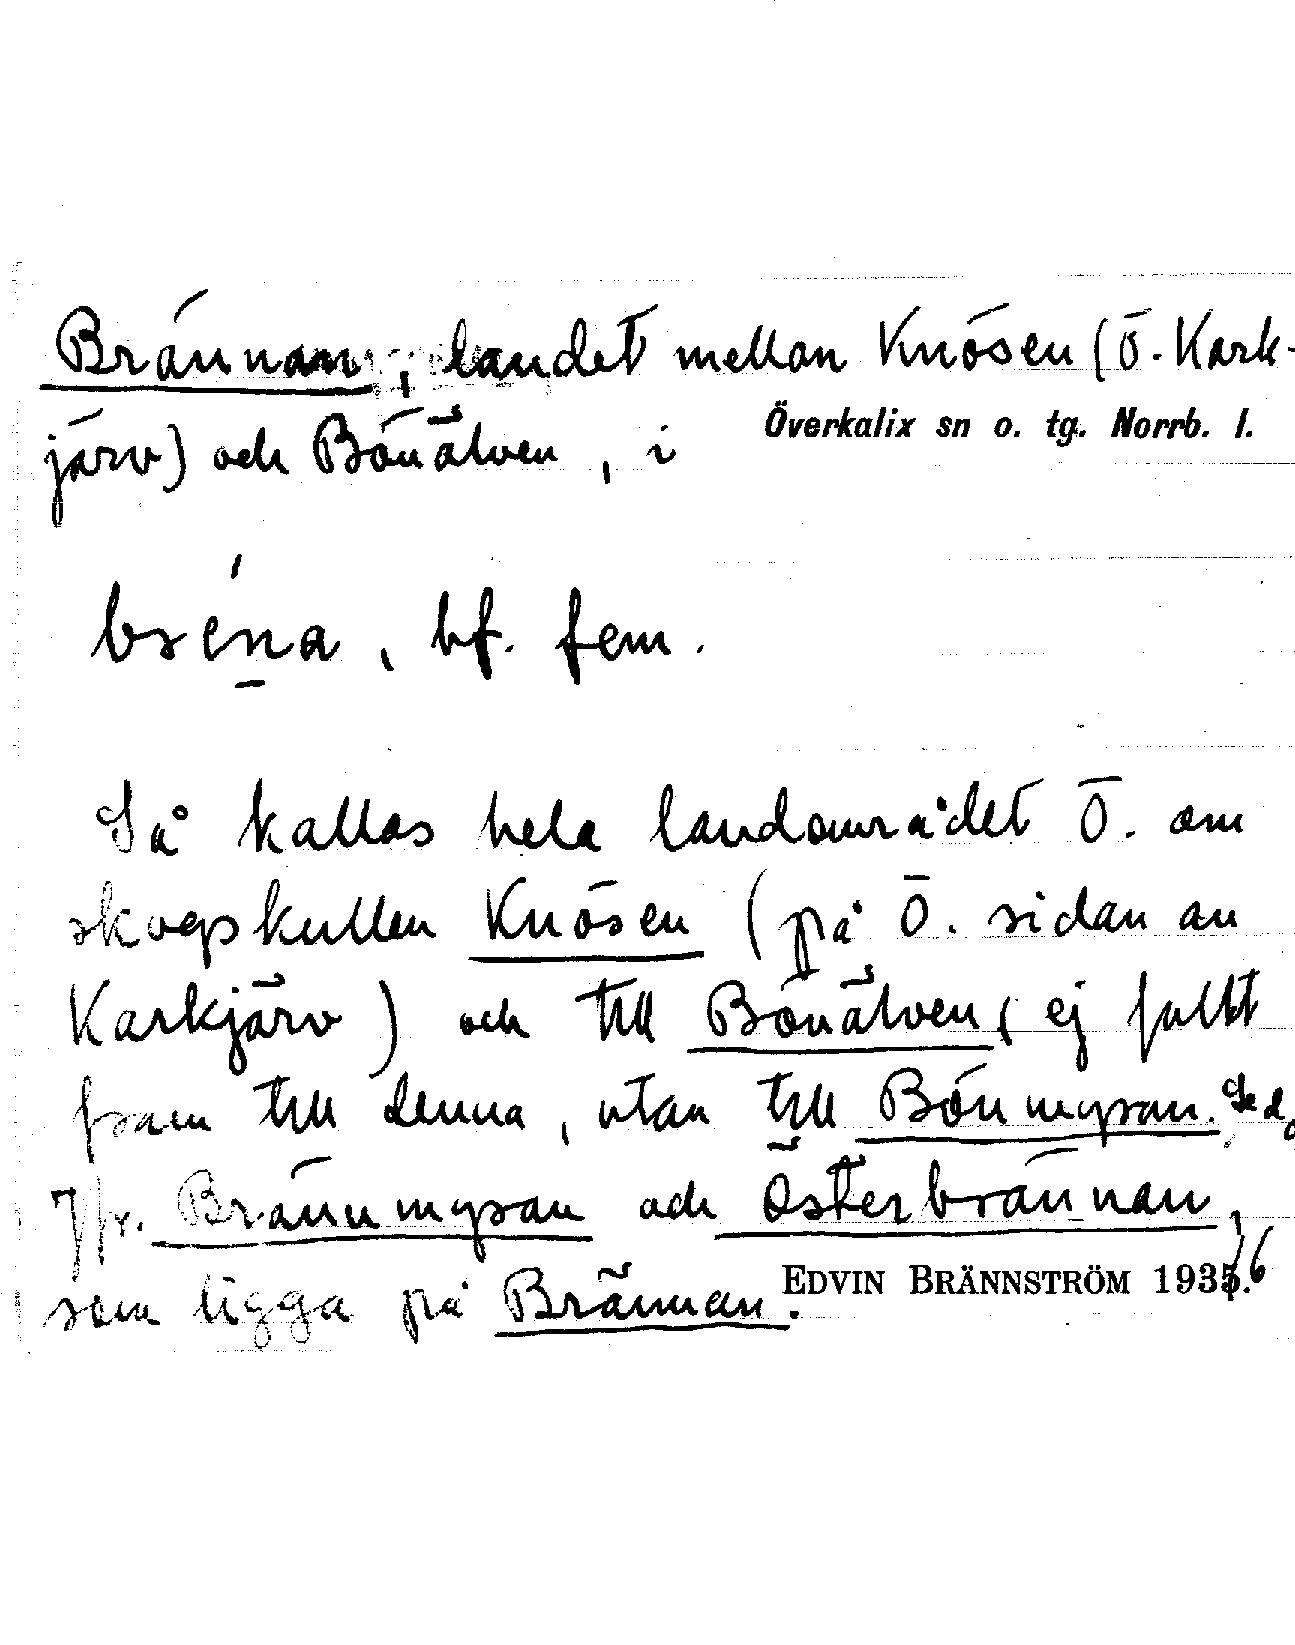 Brännan, landet mellan Knösen (Ö. Kark-
järv) och Bönälven, i
Överkalix sn o. tg. Norrb. l.
bréna, bf. fem.
Så kallas hela landområdet Ö. om
skogskullen Knösen (på Ö. sidan av
Karkjärv) och till Bönälven, ej fullt
fram till denna, utan till Bönmyran. Se d.o
Jfr. Brännmyran och Österbrännan,
som ligga på Brännan.
EDVIN BRÄNNSTRÖM 1936